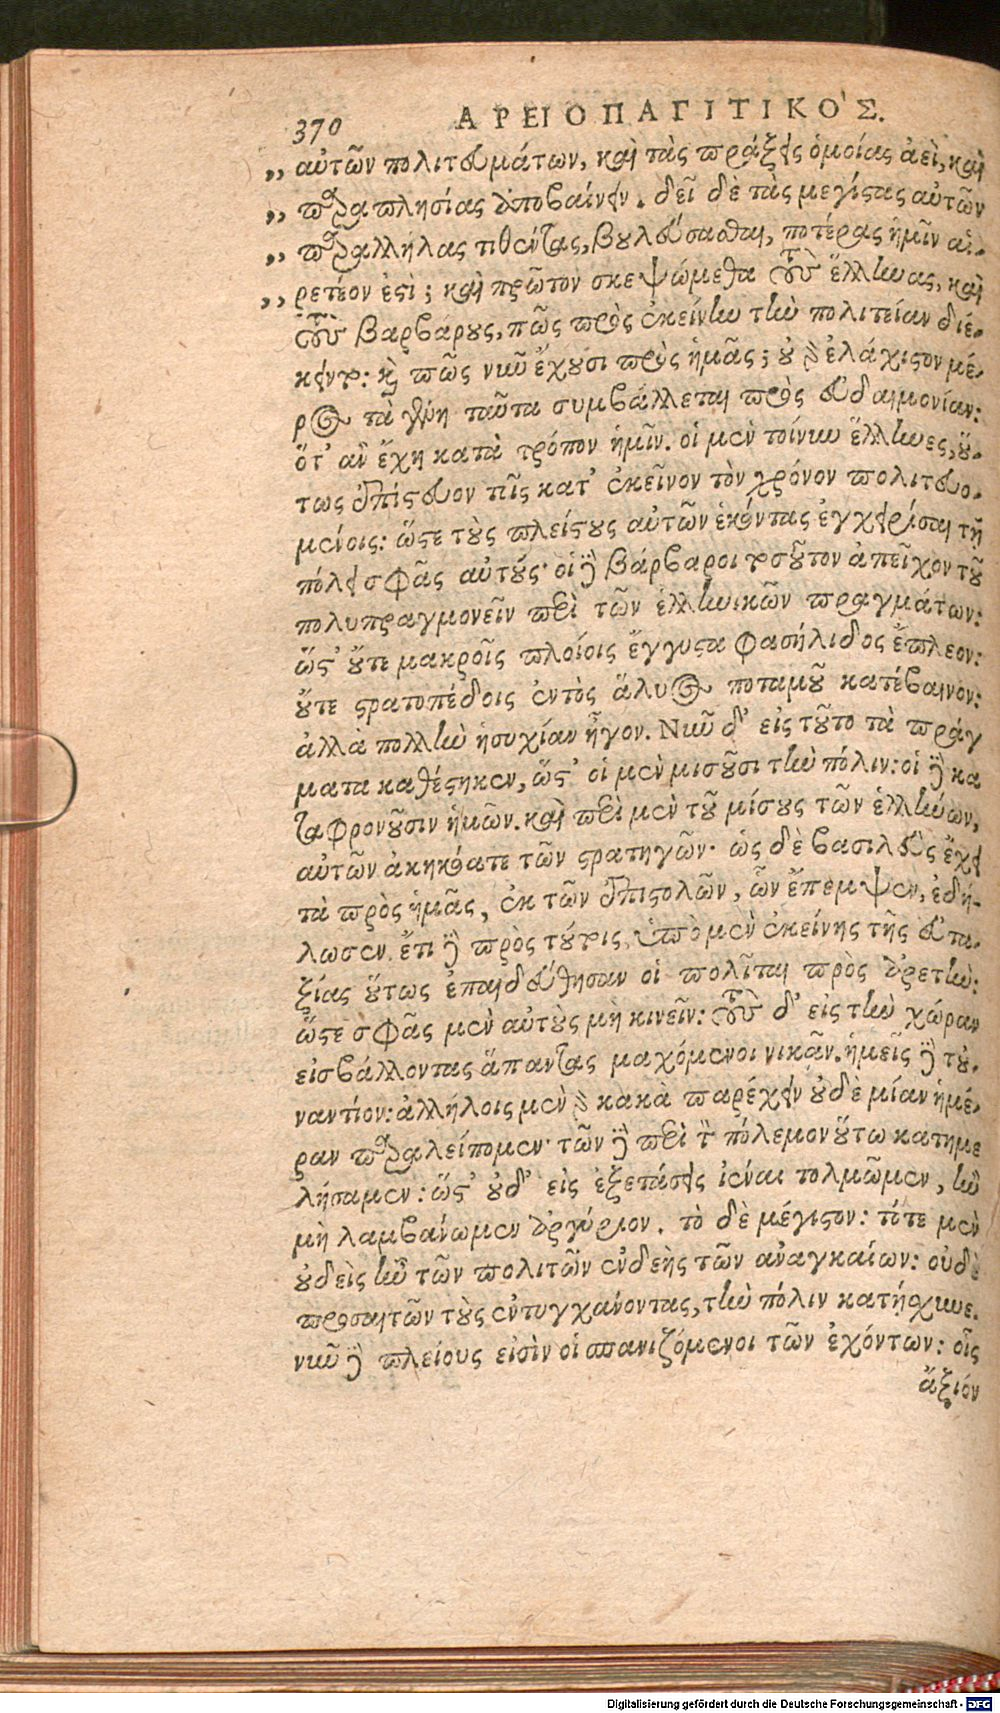 370 ΑΡΕΙΟΠΑΓΙΤΙΚΟ'Σ.
,, αὐτῶν πολιτευμάτων, καὶ τὰς πράξεις ὁμοίας ἀεὶ, καὶ
,, παραπλησίας ἀποβαίνειν. δεῖ δὲ τὰς μεγίστας αὐτῶν
,, παραλλήλας τιθέντας, βουλεύσασθαι, ποτέρας ἡμῖν αἱ-
,, ρετέον ἐστί; καὶ πρῶτον σκεψώμεθα τοὺς ἕλληνας, καὶ
τοὺς βαρβάρους, πῶς πρὸς ἐκείνην τὴν πολιτείαν διέ-
κειντο: καὶ πῶς νῦν ἔχουσι πρὸς ἡμᾶς; οὐ γὰρ ἐλάχιστον μέ-
ρος τὰ γένη ταῦτα συμβάλλεται πρὸς εὐδαιμονίαν:
ὅτ' ἂν ἔχῃ κατὰ τρόπον ἡμῖν. οἱ μὲν τοίνυν ἕλληνες, οὕ-
τως ἐπίστευον τοῖς κατ' ἐκεῖνον τὸν χρόνον πολιτευο-
μένοις: ὥστε τοὺς πλείστους αὐτῶν ἑκόντας ἐγχειρίσαι τῇ
πόλει σφᾶς αὐτούς· οἱ δὲ βάρβαροι τοσοῦτον ἀπεῖχον τοῦ
πολυπραγμονεῖν περὶ τῶν ἑλληνικῶν πραγμάτων:
ὥστ' οὔτε μακροῖς πλοίοις ἔγγυστα φασήλιδος ἔπλεον:
οὔτε στρατοπέδοις ἐντὸς ἅλυος ποταμοῦ κατέβαινον:
ἀλλὰ πολλὴν ἡσυχίαν ἦγον. Νῦν δ' εἰς τοῦτο τὰ πράγ
ματα καθέστηκεν, ὥστ' οἱ μὲν μισοῦσι τὴν πόλιν: οἱ δὲ κα
ταφρονοῦσιν ἡμῶν. καὶ περὶ μὲν τοῦ μίσους τῶν ἑλλήνων,
αὐτῶν ἀκηκόατε τῶν στρατηγῶν· ὡς δὲ βασιλεὺς ἔχει
τὰ πρὸς ἡμᾶς, ἐκ τῶν ἐπιστολῶν, ὧν ἔπεμψεν, ἐδή-
λωσεν. ἔτι δὲ πρὸς τούτοις, ὑπὸ μὲν ἐκείνης τῆς εὐτα-
ξίας οὕτως ἐπαιδεύθησαν οἱ πολῖται πρὸς ἀρετὴν:
ὥστε σφᾶς μὲν αὐτοὺς μὴ κινεῖν: τοὺς δ' εἰς τὴν χώραν
εἰσβάλλοντας ἅπαντας μαχόμενοι νικᾶν. ἡμεῖς δὲ τοὐ-
ναντίον: ἀλλήλοις μὲν γὰρ κακὰ παρέχειν οὐδὲ μίαν ἡμέ-
ραν παραλείπομεν· τῶν δὲ περὶ τὸν πόλεμον οὕτω κατημε
λήσαμεν: ὥστ' οὐδ' εἰς ἐξετάσεις ἰέναι τολμῶμεν, ἢν
μὴ λαμβάνωμεν ἀργύριον. τὸ δὲ μέγιστον: τότε μὲν
οὐδεὶς ἦν τῶν πολιτῶν ἐνδεὴς τῶν ἀναγκαίων: οὐδὲ
προσαιτῶν τοὺς ἐντυγχάνοντας, τὴν πόλιν κατῄσχυνε.
νῦν δὲ πλείους εἰσὶν οἱ σπανιζόμενοι τῶν ἐχόντων: οἷς
ἄξιόν
Digitalisierung gefördert durch die Deutsche Forschungsgemeinschaft - DFG